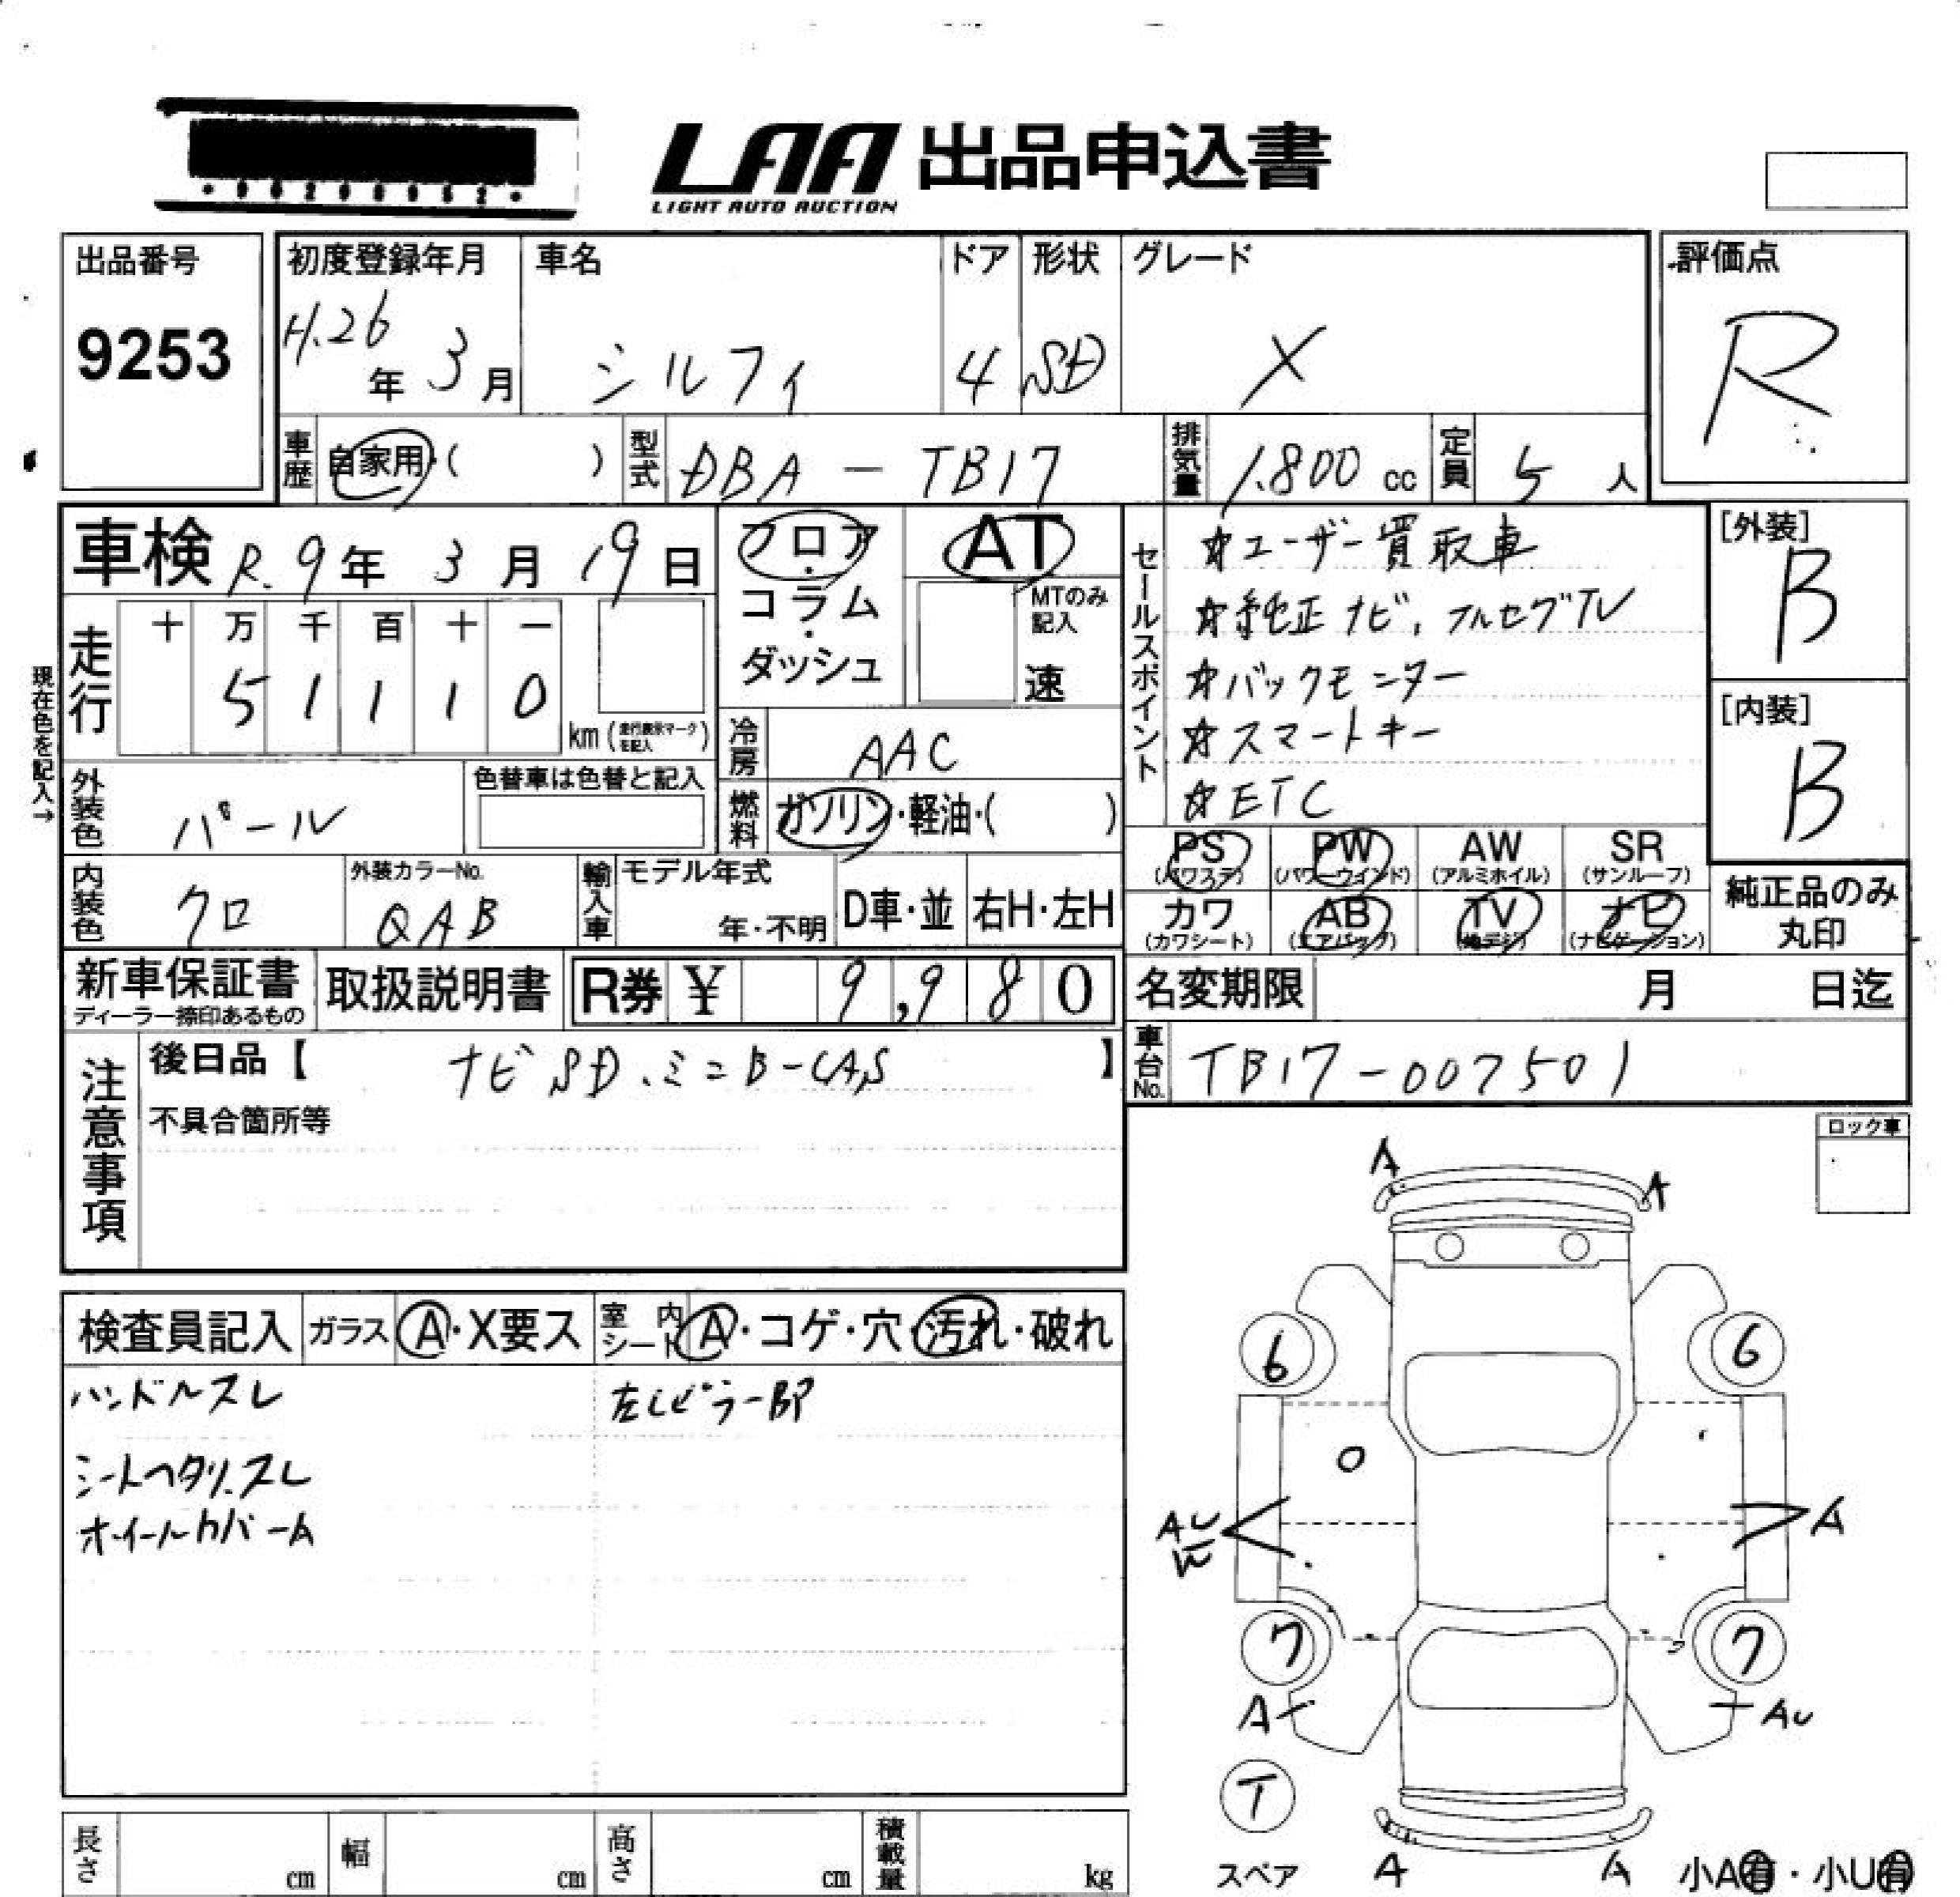 LAA 出品申込書
LIGHT AUTO AUCTION
出品番号
9253
初度登録年月
H.26年 3月
車名
シルフィ
ドア
4
形状
SD
グレード
X
評価点
R
車歴 自家用・( )
型式 DBA-TB17
排気量 1.800 cc
定員 5 人
車検 R.9年 3月 19日
フロア・コラム・ダッシュ
AT
MTのみ記入
速
セールスポイント
☆ユーザー買取車
☆純正ナビ、フルセグTV
☆バックモニター
☆スマートキー
☆ETC
[外装]
B
[内装]
B
現在色を記入→
走行
十 万 千 百 十 一
5 1 1 1 0
km (走行表示マークを記入)
冷房 AAC
外装色 パール
色替車は色替と記入
燃料 ガソリン・軽油・( )
PS (パワステ)
PW (パワーウインド)
AW (アルミホイル)
SR (サンルーフ)
カワ (カワシート)
AB (エアバッグ)
TV (地デジ)
ナビ (ナビゲーション)
純正品のみ丸印
内装色 クロ
外装カラーNo.
QAB
輸入車
モデル年式
年・不明
D車・並
右H・左H
新車保証書
ディーラー捺印あるもの
取扱説明書
R券 ¥ 9,980
名変期限 月 日迄
車台No. TB17-007501
注意事項
後日品【 ナビSD、ミニB-CAS 】
不具合箇所等
ロック車
検査員記入
ガラス A・X要ス
室内シート A・コゲ・穴・汚れ・破れ
ハンドルスレ
左Cピラー部
シートヘタリ、スレ
ホイールカバーA
A
A
6
6
AU
W
A
7
7
A
AU
T
スペア
A
A
小A有・小U有
長さ cm
幅 cm
高さ cm
積載量 kg